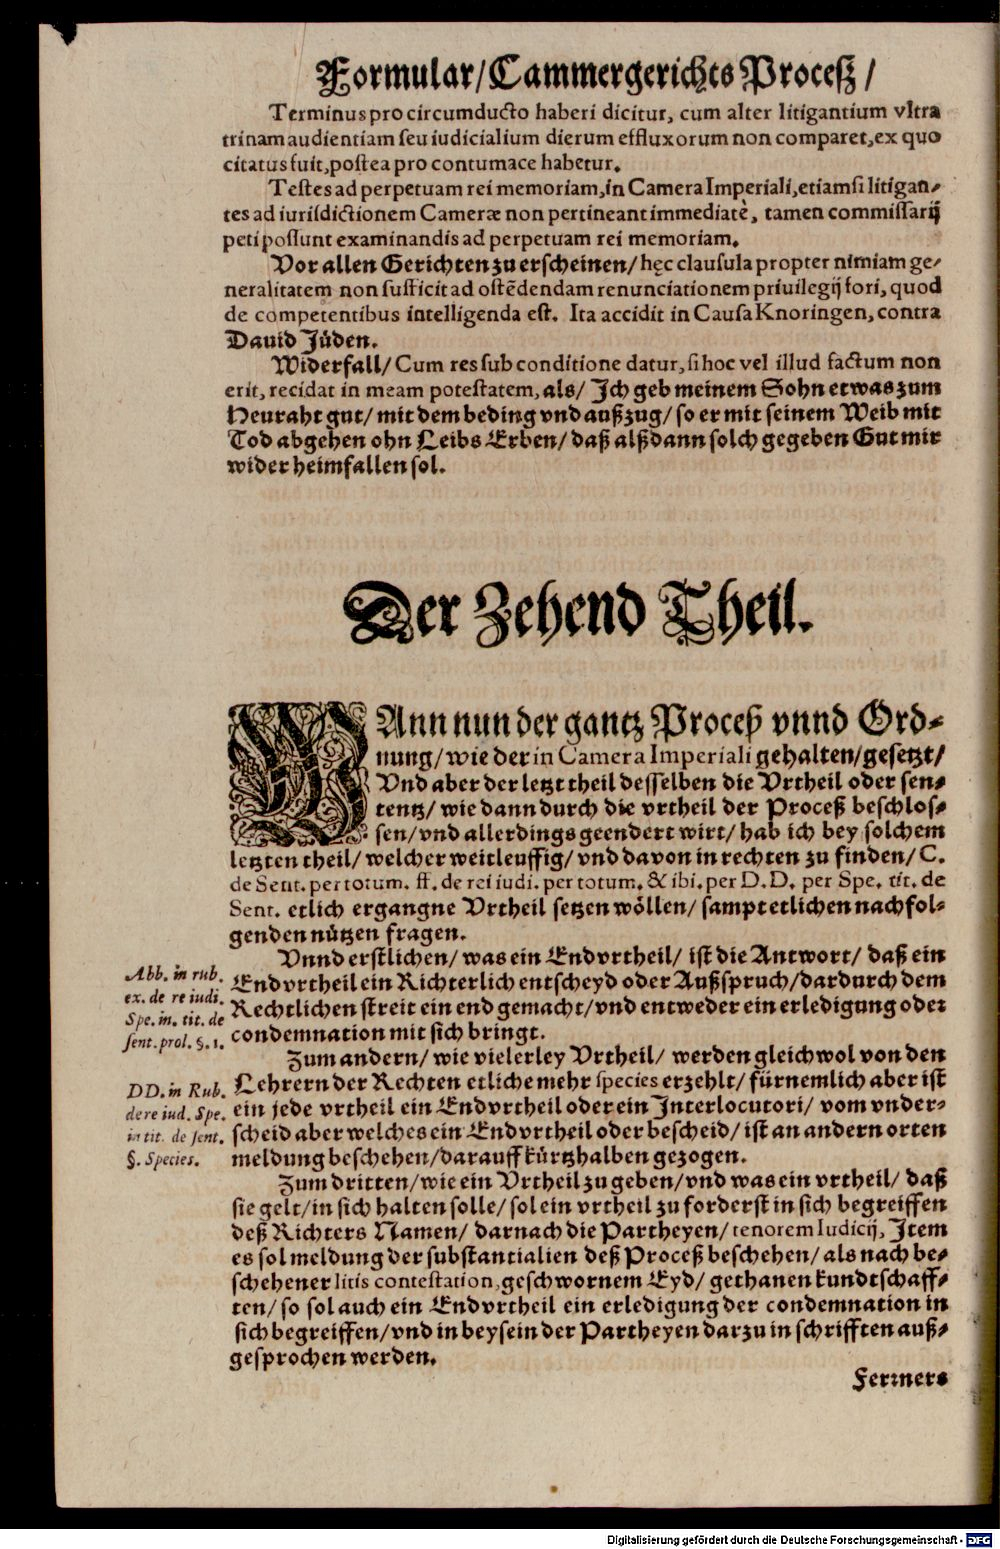 Formular/Cammergerichts Proceſz/
Terminus pro circumducto haberi dicitur, cum alter litigantium vltra
trinam audientiam ſeu iudicialium dierum effluxorum non comparet, ex quo
citatus fuit, poſtea pro contumace habetur.
Teſtes ad perpetuam rei memoriam, in Camera Imperiali, etiamſi litigan-
tes ad iuriſdictionem Cameræ non pertineant immediatè, tamen commiſſarij
peti poſſunt examinandis ad perpetuam rei memoriam.
Vor allen Gerichten zu erſcheinen/ hęc clauſula propter nimiam ge-
neralitatem non ſufficit ad oſtẽdendam renunciationem priuilegij fori, quod
de competentibus intelligenda eſt. Ita accidit in Cauſa Knoringen, contra
Dauid Jüden.
Widerfall/ Cum res ſub conditione datur, ſi hoc vel illud factum non
erit, recidat in meam poteſtatem, als/ Jch geb meinem Sohn etwas zum
Heuraht gut/ mit dem beding vnd außzug/ ſo er mit ſeinem Weib mit
Tod abgehen ohn Leibs Erben/ daß alßdann ſolch gegeben Gut mir
wider heimfallen ſol.
Der Zehend Theil.
WAnn nun der gantz Proceß vnnd Ord-
nung/ wie der in Camera Imperiali gehalten/ geſetzt/
Vnd aber der letzt theil deſſelben die Vrtheil oder ſen-
tentz/ wie dann durch die vrtheil der Proceß beſchloſ-
ſen/ vnd allerdings geendert wirt/ hab ich bey ſolchem
letzten theil/ welcher weitleuffig/ vnd davon in rechten zu finden/ C.
de Sent. per totum. ff. de rei iudi. per totum. & ibi. per D.D. per Spe. tit. de
Sent. etlich ergangne Vrtheil ſetzen wöllen/ ſampt etlichen nachfol-
genden nützen fragen.
Vnnd erſtlichen/ was ein Endvrtheil/ iſt die Antwort/ daß ein
Endvrtheil ein Richterlich entſcheyd oder Außſpruch/ dardurch dem
Rechtlichen ſtreit ein end gemacht/ vnd entweder ein erledigung oder
condemnation mit ſich bringt.
Abb. in rub.
ex. de re iudi.
Spe. in. tit. de
ſent. prol. §. 1.
Zum andern/ wie vielerley Vrtheil/ werden gleichwol von den
Lehrern der Rechten etliche mehr ſpecies erzehlt/ fürnemlich aber iſt
ein jede vrtheil ein Endvrtheil oder ein Interlocutori/ vom vnder-
ſcheid aber welches ein Endvrtheil oder beſcheid/ iſt an andern orten
meldung beſchehen/ darauff kürtzhalben gezogen.
DD. in Rub.
de re iud. Spe.
in tit. de ſent.
§. Species.
Zum dritten/ wie ein Vrtheil zu geben/ vnd was ein vrtheil/ daß
ſie gelt/ in ſich halten ſolle/ ſol ein vrtheil zu forderſt in ſich begreiffen
deß Richters Namen/ darnach die Partheyen/ tenorem Iudicij, Jtem
es ſol meldung der ſubſtantialien deß Proceß beſchehen/ als nach be-
ſchehener litis conteſtation, geſchwornem Eyd/ gethanen kundtſchaff-
ten/ ſo ſol auch ein Endvrtheil ein erledigung der condemnation in
ſich begreiffen/ vnd in beyſein der Partheyen darzu in ſchrifften auß-
geſprochen werden.
Ferrners
Digitalisierung gefördert durch die Deutsche Forschungsgemeinschaft - DFG